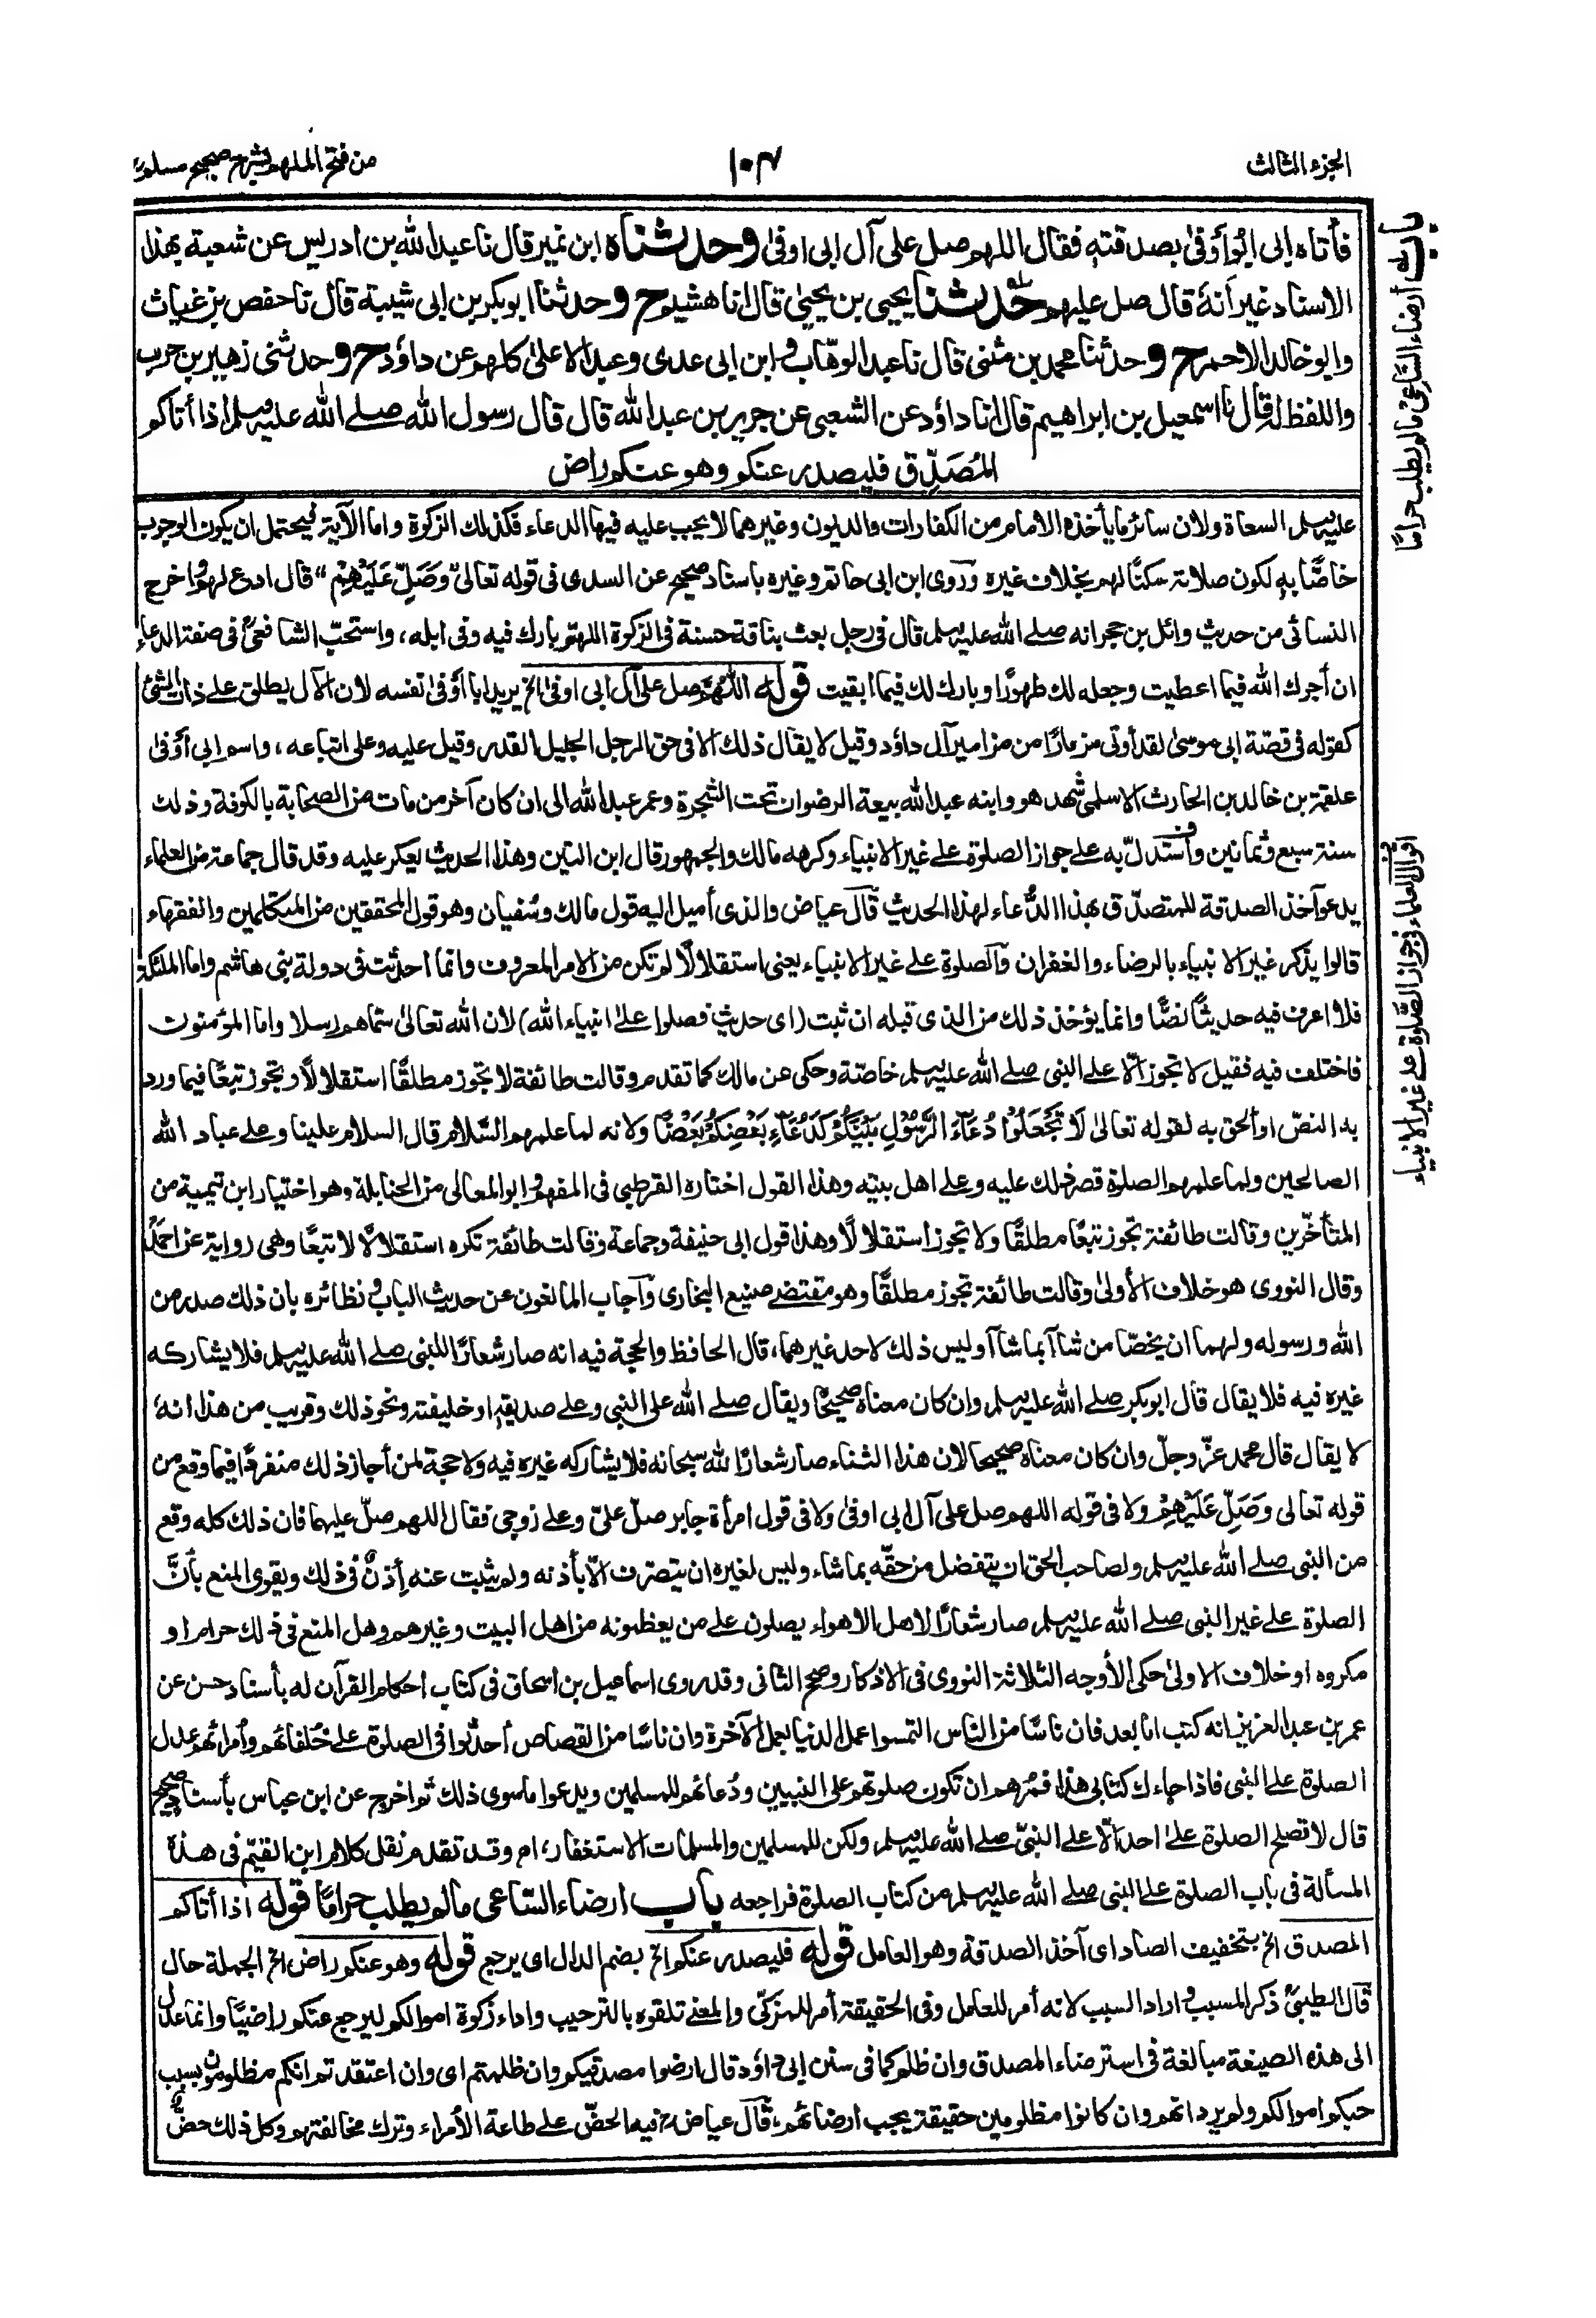 الجزء الثالث
١٠٣
من فتح الملهم بشرح صحيح مسلم
باب ارضاء الساعى مالم يطلب حرامًا
فأتاه ابى ابوأوفى بصدقته فقال اللهم صل على آل ابى اوفى وحدثناه ابن نمير قال نا عبد الله بن ادريس عن شعبة بهذا
الاسناد غير أنهٗ قال صل عليهم حدثنا يحيى بن يحيى قال انا هشيم ح وحدثنا ابوبكر بن ابى شيبة قال نا حفص بن غياث
وابوخالد الاحمر ح وحدثنا محمد بن مثنى قال نا عبد الوهّاب وابن ابى عدى وعبد الاعلى كلهم عن داؤد ح وحدثنى زهير بن حرب
واللفظ له قال نا اسمعيل بن ابراهيم قال انا داؤد عن الشعبى عن جرير بن عبد الله قال قال رسول الله صلے الله عليه وسلم اذا أتاكم
المُصَدِّق فليصدر عنكم وهو عنكم راض
عليه وسلم السعاة ولان سائر ما يأخذه الامام من الكفارات والديون وغيرهما لا يجب عليه فيها الدعاء فكذلك الزكوة واما الآية فيحتمل ان يكون الوجوب
خاصًّا به لكون صلاته سكنًا لهم بخلاف غيره وروى ابن ابى حاتم وغيره باسناد صحيح عن السدى فى قوله تعالى وَصَلِّ عَلَيْهِمْ" قال ادع لهم واخرج
النسائى من حديث وائل بن حجر انه صلے الله عليه وسلم قال فى رجل بعث بناقة حسنة فى الزكوة اللهم بارك فيه وفى ابله، واستحبّ الشافعىؒ فى صفة الدعاء
ان أجرك الله فيما اعطيت وجعله لك طهورًا وبارك لك فيما ابقيت قوله اللهم صل على آل ابى اوفى الخ يريد ابا أوفى نفسه لان الآل يطلق على ذات الشئ
كقوله فى قصّة ابى موسى لقد أوتى مزمارًا من مزامير آل داؤد وقيل لا يقال ذلك الا فى حق الرجل الجليل القدر وقيل عليه وعلى اتباعه، واسم ابى أوفى
علقمة بن خالد بن الحارث الاسلمى شهد هو وابنه عبد الله بيعة الرضوان تحت الشجرة وعمر عبد الله الى ان كان آخر من مات من الصحابة بالكوفة وذلك
سنة سبع وثمانين واستدلّ به على جواز الصلوة على غير الانبياء وكرهه مالك والجمهور قال ابن التين وهذا الحديث يعكر عليه وقد قال جماعة من العلماء
اقوال العلماء فى جواز الصلوة على غير الانبياء
يدعو آخذ الصدقة للمتصدّق بهذا الدُّعاء لهذا الحديث قال عياض والذى أميل اليه قول مالك وسُفيان وهو قول المحققين من المتكلمين والفقهاء
قالوا يذكر غير الانبياء بالرضاء والغفران والصلوة على غير الانبياء يعنى استقلالًا لم تكن من الامر المعروف وانما احدثت فى دولة بنى هاشم واما الملئكة
فلا اعرف فيه حديثًا نصًّا وانما يؤخذ ذلك من الذى قبله ان ثبت (اى حديث فصلوا على انبياء الله) لان الله تعالى سمّاهم رسلا واما المؤمنون
فاختلف فيه فقيل لا تجوز الّا على النبى صلے الله عليه وسلم خاصّة وحكى عن مالك كما تقدم وقالت طائفة لا تجوز مطلقًا استقلالًا وتجوز تبعًا فيما ورد
به النصّ او ألحق به لقوله تعالى لَا تَجْعَلُوْا دُعَآءَ الرَّسُوْلِ بَيْنَكُمْ كَدُعَآءِ بَعْضِكُمْ بَعْضًا ولانه لما علمهم السّلام قال السلام علينا وعلى عباد الله
الصالحين ولما علمهم الصلوة قصر ذلك عليه وعلى اهل بيته وهذا القول اختاره القرطبى فى المفهم وابو المعالى من الحنابلة وهو اختيار ابن تيمية من
المتأخّرين وقالت طائفة تجوز تبعًا مطلقًا ولا تجوز استقلالًا وهذا قول ابى حنيفة وجماعة وقالت طائفة تكره استقلالًا لا تبعًا وهى رواية عن احمدؒ
وقال النووى هو خلاف الأولى وقالت طائفة تجوز مطلقًا وهو مقتضے صنيع البخارى وأجاب المانعون عن حديث الباب ونظائره بان ذلك صدر من
الله ورسوله ولهما ان يخصّا من شاآ بما شاآ وليس ذلك لاحد غيرهما، قال الحافظ والحجة فيه انه صار شعارًا للنبى صلے الله عليه وسلم فلا يشاركه
غيره فيه فلا يقال قال ابوبكر صلے الله عليه وسلم وان كان معناه صحيحًا ويقال صلے الله على النبى وعلى صديقه او خليفته ونحو ذلك وقريب من هذا انهٗ
لا يقال قال محمد عزّ وجلّ وان كان معناه صحيحا لان هذا الثناء صار شعارًا لله سبحانه فلا يشاركه غيره فيه ولا حجة لمن أجاز ذلك منفردًا فيما وقع من
قوله تعالى وَصَلِّ عَلَيْهِمْ ولا فى قوله اللهم صل على آل ابى اوفى ولا فى قول امرأة جابر صلّ علىّ وعلى زوجى فقال اللهم صلّ عليهما فان ذلك كله وقع
من النبى صلے الله عليه وسلم ولصاحب الحق ان يتفضل من حقّه بما شاء وليس لغيره ان يتصرف الّا بأذنه ولم يثبت عنه إذنٌ فى ذلك ويقوى المنع بأنَّ
الصلوة على غير النبى صلے الله عليه وسلم صار شعارًا لاهل الاهواء يصلون على من يعظمونه من اهل البيت وغيرهم وهل المنع فى ذلك حرام او
مكروه او خلاف الاولى حكى الأوجه الثلاثة النووى فى الاذكار وصحح الثانى وقد روى اسماعيل بن اسحاق فى كتاب احكام القرآن له بأسناد حسن عن
عمر بن عبد العزيز انه كتب اما بعد فان ناسًا من الناس التمسوا عمل الدنيا بعمل الآخرة وان ناسًا من القصاص أحدثوا فى الصلوة على خلفائهم وأمرائهم عدل
الصلوة على النبى فاذا جاءك كتابى هذا فمُرهم ان تكون صلوتهم على النبيين ودُعائهم للمسلمين ويدعوا ما سوى ذلك ثم اخرج عن ابن عباس بأسناد صحيح
قال لا تصلح الصلوة على احد الّا على النبىّ صلے الله عليه وسلم ولكن للمسلمين والمسلمات الاستغفار، اھ وقد تقدم نقل كلام ابن القيّم فى هذه
المسألة فى باب الصلوة على النبى صلے الله عليه وسلم من كتاب الصلوة فراجعه باب ارضاء السّاعى مالم يطلب حرامًا قوله اذا أتاكم
المصدق الخ بتخفيف الصاد اى آخذ الصدقة وهو العامل قوله فليصدر عنكم الخ بضم الدال اى يرجع قوله وهو عنكم راض الخ الجملة حال
قال الطيبىؒ ذكر المسبب واراد السبب لانه أمر للعامل وفى الحقيقة أمر للمزكّى والمعنے تلقوه بالترحيب واداء زكوة اموالكم ليرجع عنكم راضيًا وانما عدل
الى هذه الصيغة مبالغة فى استرضاء المصدق وان ظلم كما فى سنن ابى داؤد قال ارضوا مصدقيكم وان ظلمتم اى وان اعتقدتم انكم مظلومون بسبب
حبكم اموالكم ولم يرد انهم وان كانوا مظلومين حقيقة يجب ارضائهم، قال عياض فيه الحضّ على طاعة الأمراء وترك مخالفتهم وكل ذلك حضٌّ